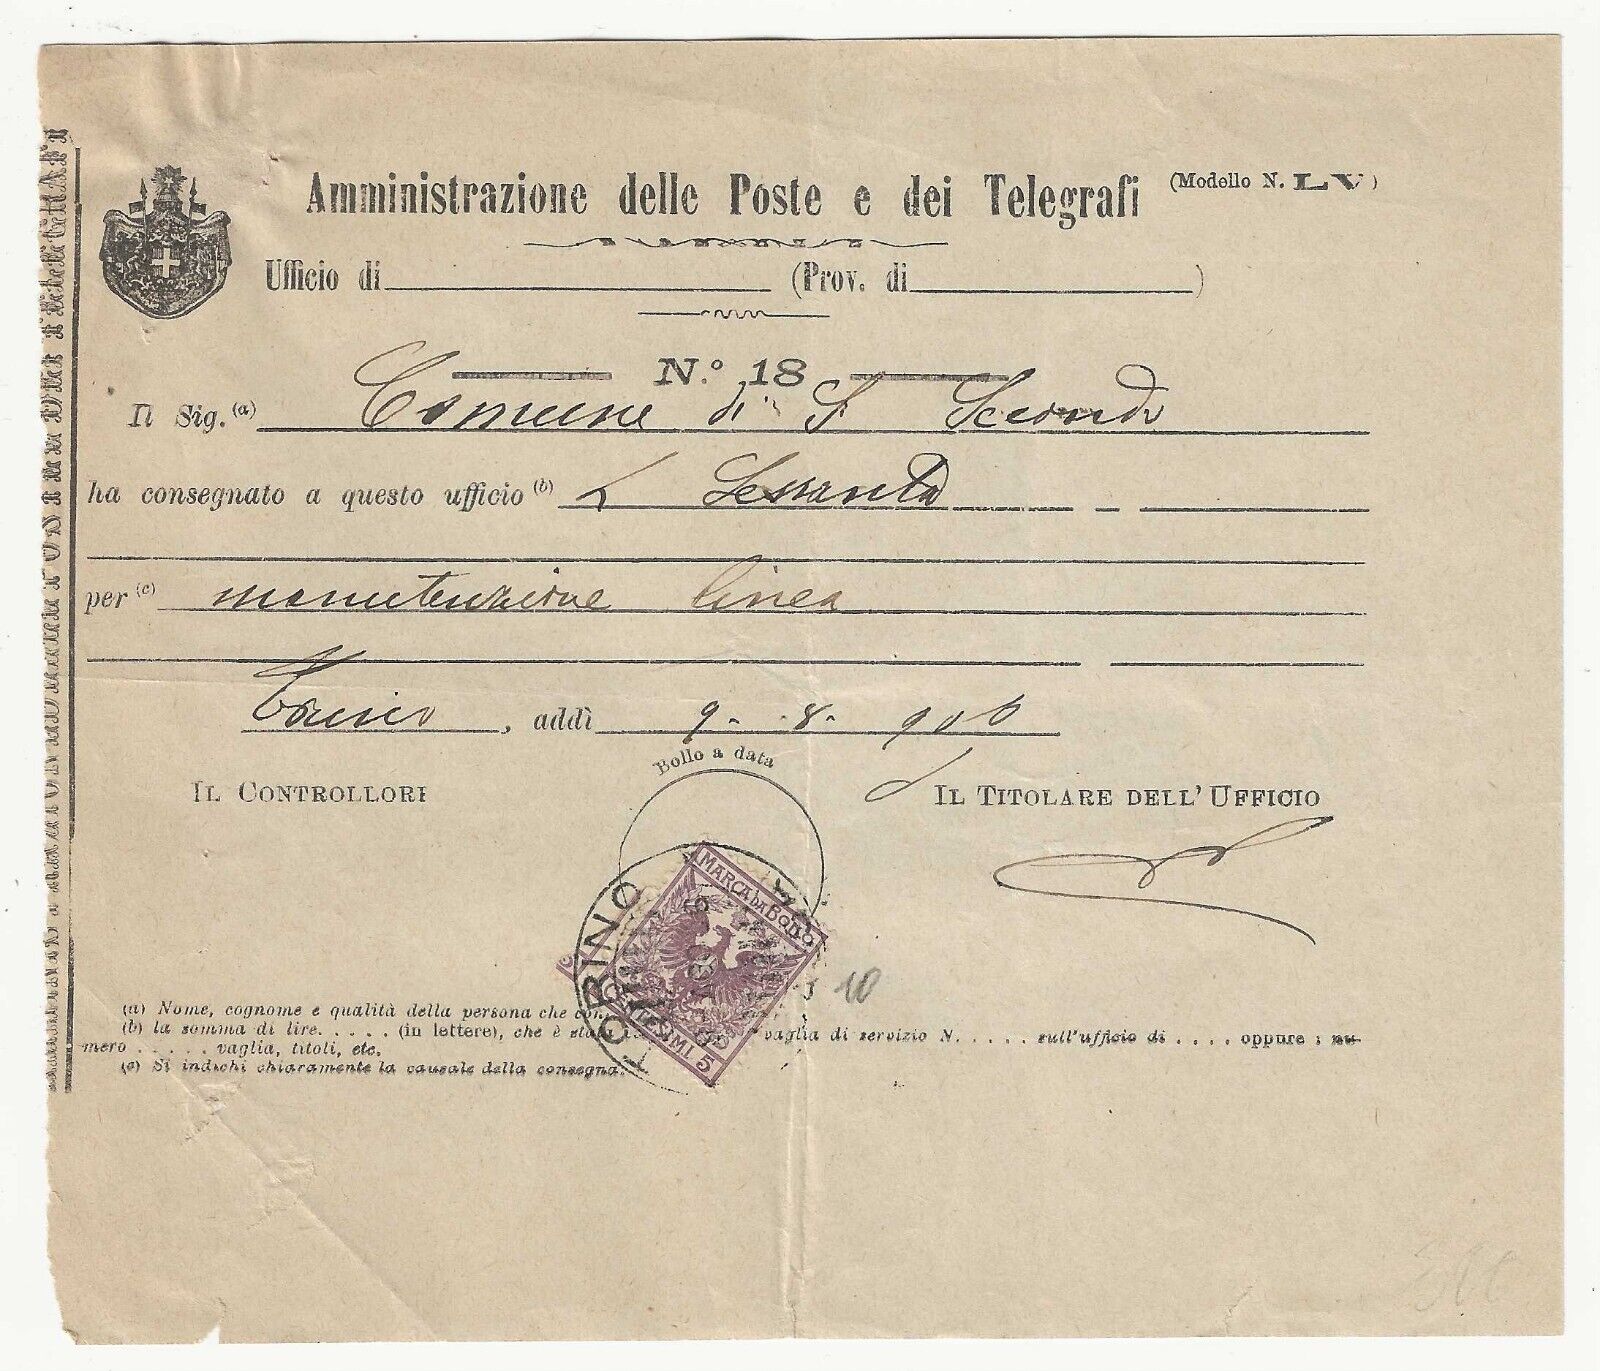 Amministrazione delle Poste e dei Telegrafi (Modello N. LV)
Ufficio di (Prov. di )
N.° 18
Il Sig. (a) Comune di S Secondo
ha consegnato a questo ufficio (b) L Sessanta
per (c) manutenzione linea
Torino, addì 9-8-906
Bollo a data
IL CONTROLLORE
IL TITOLARE DELL'UFFICIO
MARCA DA BOLLO
CENTESIMI 5
TORINO
10
(a) Nome, cognome e qualità della persona che
(b) la somma di lire. . . . . (in lettere), che è vaglia di servizio N. . . . . . sull'ufficio di . . . . oppure : nu-
mero . . . . . vaglia, titoli, etc.
(c) Si indichi chiaramente la causale della consegna.